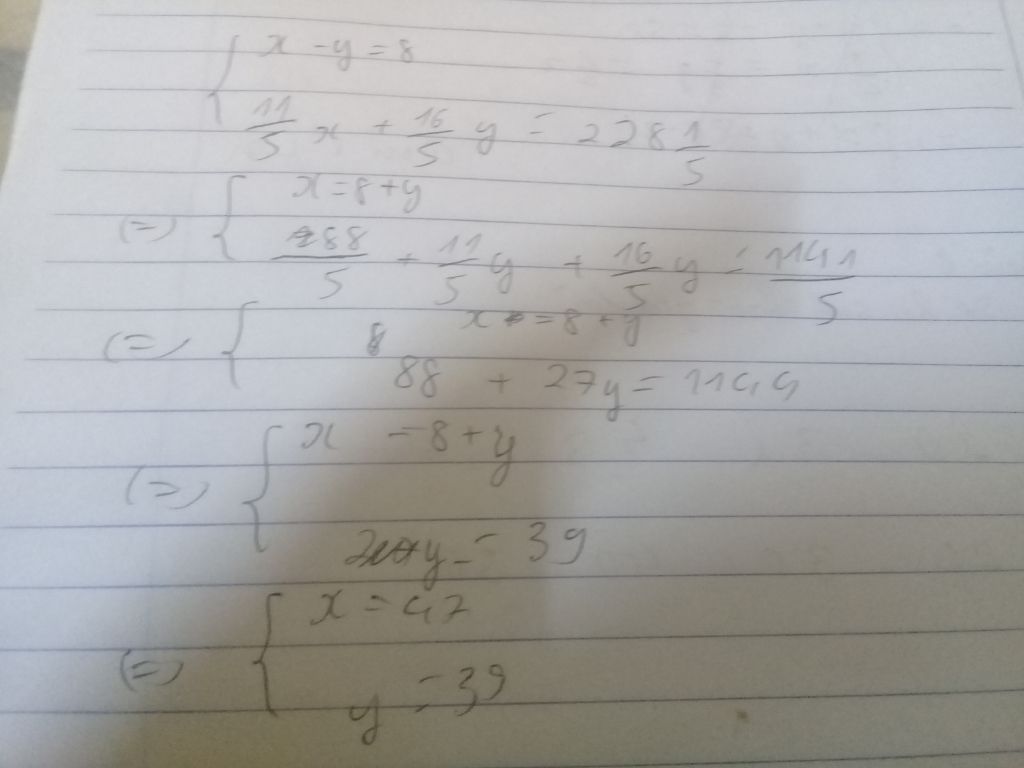 x - y = 8
11/5 x + 16/5 y = 228 1/5
(=) x = 8 + y
88/5 + 11/5 y + 16/5 y = 1141/5
(=) x = 8 + y
8
88 + 27y = 1144
(=) x = 8 + y
y = 39
(=) x = 47
y = 39